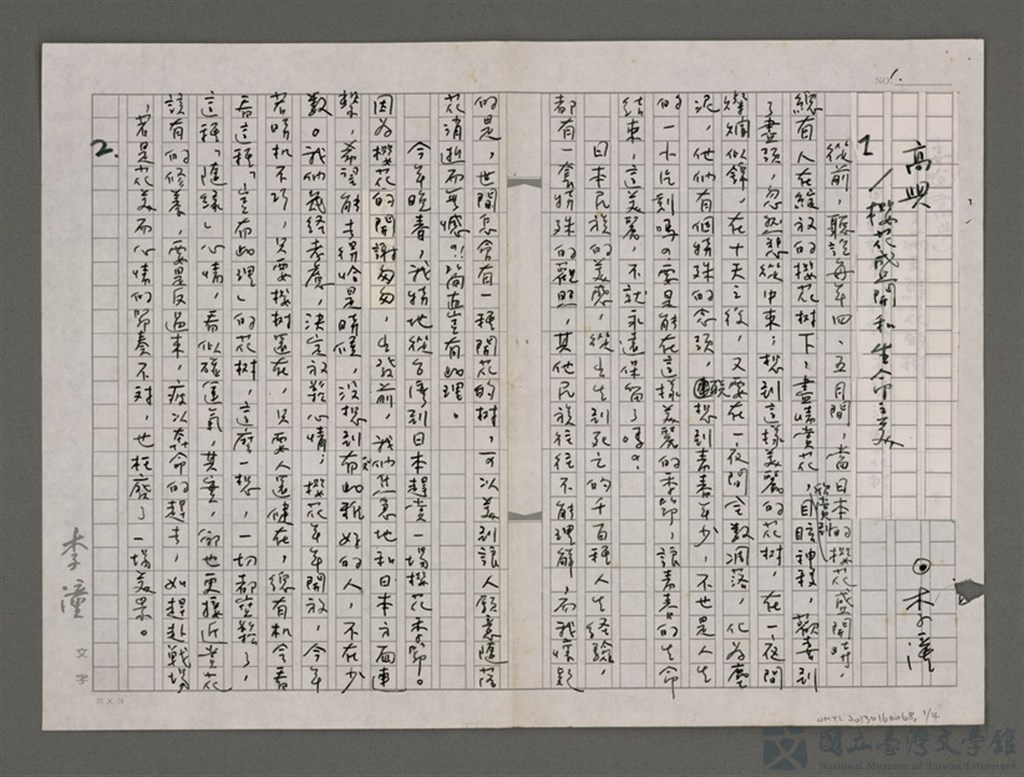 NO. 1.
高興
1/櫻花盛開和生命之美
⊙李潼
從前，聽說每年四、五月間，當日本的櫻花盛開時，
總有人在綻放的櫻花樹下，盡情賞花，目眩神移，歡喜到
了盡頭，忽然悲從中來；想到這樣美麗的花樹，在一夜間
燦爛似錦，在十天之後，又要在一夜間全數凋落，化為塵
泥，他們有個特殊的念頭，聯想到青春年少，不也是人生
的一小片刻嗎？要是能在這樣美麗的季節，讓青春的生命
結束，這美麗，不就永遠保留了嗎？
日本民族的美感，從出生到死亡的千百種人生經驗，
都有一套特殊的觀照，其他民族往往不能理解，而我懷疑
的是，世間怎會有一種開花的樹，可以美到讓人願意隨落
花消逝而無憾？！簡直豈有此理。
今年晚春，我特地從台灣到日本趕賞一場櫻花季節。
因為櫻花的開謝匆匆，出發前，我們焦急地和日本方面連
繫，希望能去得恰是時候，沒想到有此雅好的人，不在少
數。我們幾經考慮，決定放鬆心情；櫻花年年開放，今年
若時机不巧，只要櫻樹還在，只要人還健在，總有机会看
看這種「豈有此理」的花樹，這麼一想，一切都空鬆了，
這種「隨緣」心情，看似碰運氣，其實，卻也更接近賞花
該有的修養，要是反過來，疲以奔命的趕去，如趕赴戰場
，若是花美而心情的節奏不對，也枉廢了一場美景。
2.
李潼
文字
25 X 24
NMTL 20130160068, 1/4
國立臺灣文學館
National Museum of Taiwan Literature